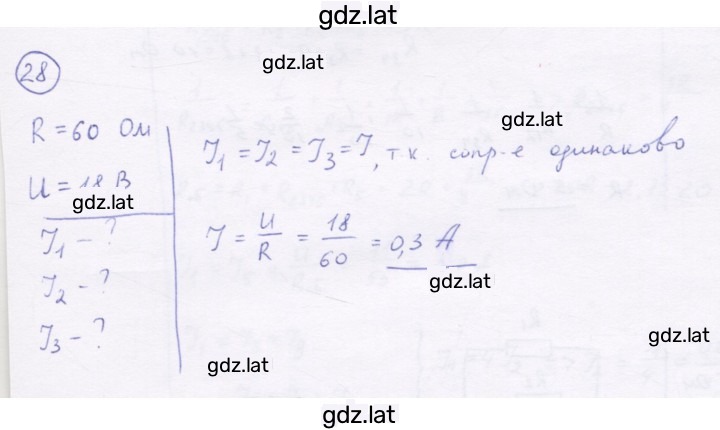 gdz.lat
28
gdz.lat
R = 60 Ом
U = 18 В
gdz.lat
I₁ - ?
I₂ - ?
I₃ - ?
I₁ = I₂ = I₃ = I, т.к. сопр-е одинаково
I = U/R = 18/60 = 0,3 А
gdz.lat
gdz.lat
gdz.lat
gdz.lat